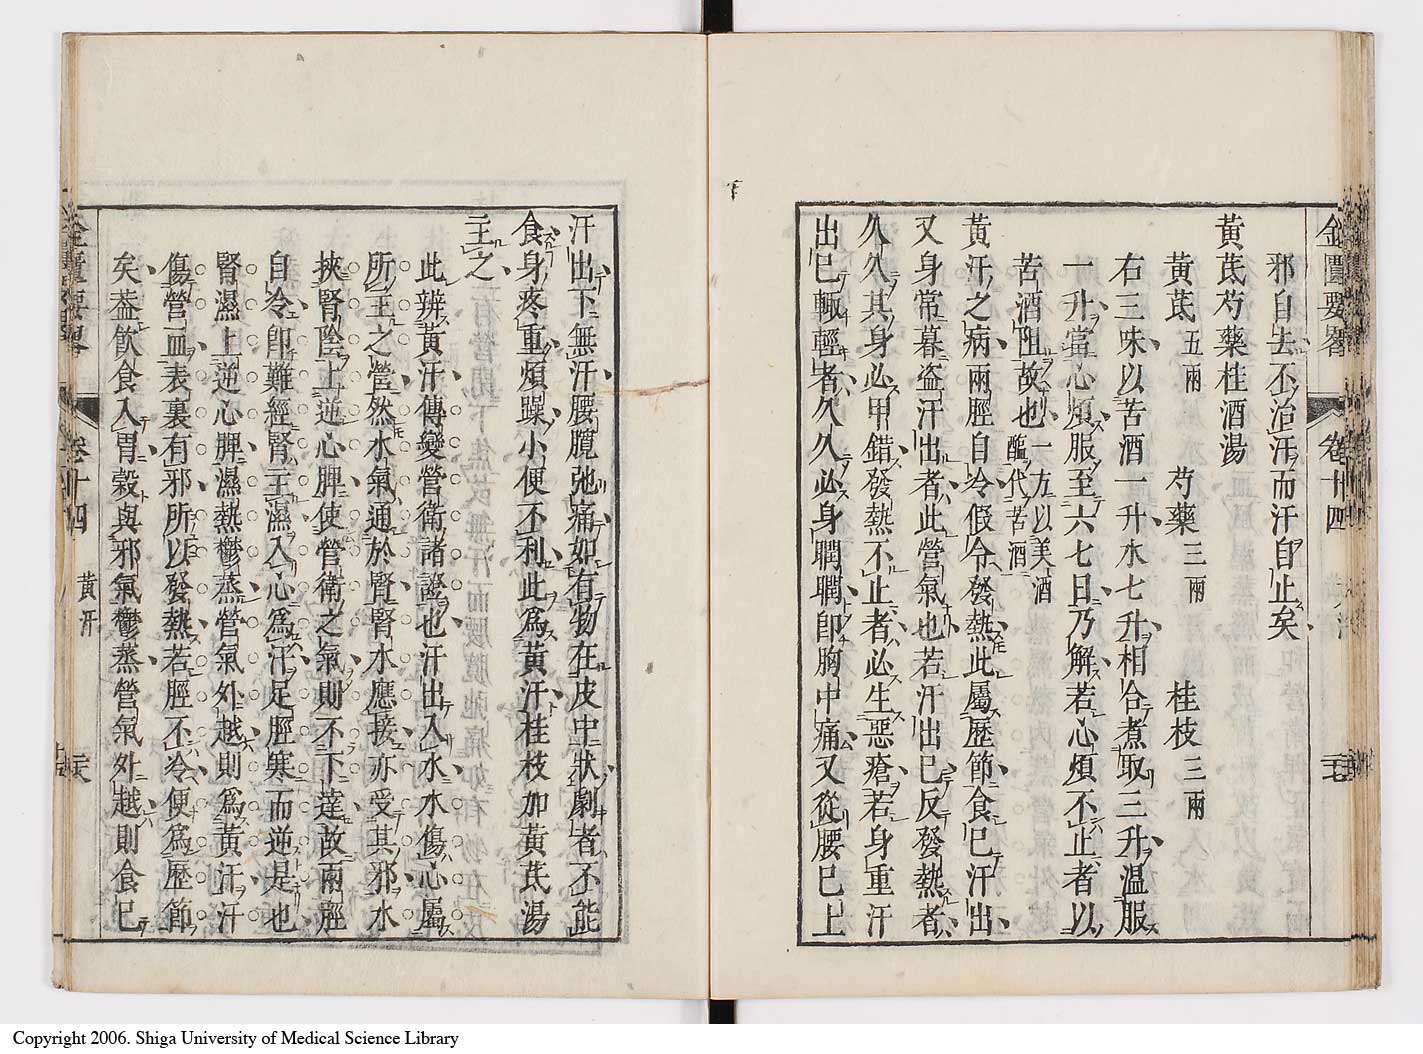 金匱要畧 卷十四
邪自去不治汗而汗自止矣
黃芪芍藥桂酒湯
黃芪五兩 芍藥三兩 桂枝三兩
右三味以苦酒一升水七升相合煮取三升溫服
一升當心煩服至六七日乃解若心煩不止者以
苦酒阻故也一方以美酒醯代苦酒
黃汗之病兩脛自冷假令發熱此屬歷節食已汗出
又身常暮盗汗出者此營氣也若汗出已反發熱者
久久其身必甲錯發熱不止者必生惡瘡若身重汗
出已輙輕者久久必身瞤瞤卽胸中痛又從腰已上
汗出下無汗腰髖弛痛如有物在皮中狀劇者不能
食身疼重煩躁小便不利此爲黃汗桂枝加黃芪湯
主之
此辨黃汗傳變營衛諸證也汗出入水水傷心屬
所主之營然水氣通於腎腎水應接亦受其邪水
挾腎陰上逆心脾使營衛之氣則不下達故兩脛
自冷卽難經腎主濕入心爲汗足脛寒而逆是也
腎濕上逆心脾濕熱鬱蒸營氣外越則爲黃汗汗
傷營血表裏有邪所以發熱若脛不冷便爲歷節
矣葢飮食入胃穀與邪氣鬱蒸營氣外越則食已
金匱要畧 卷十四 黃汗